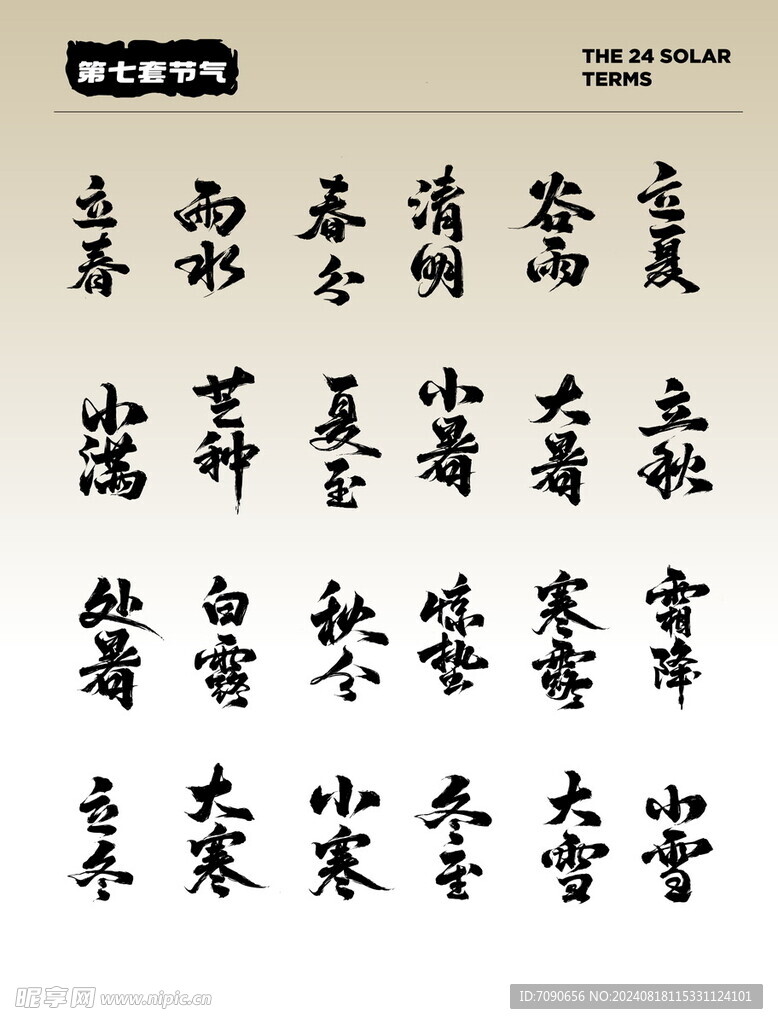 第七套节气
THE 24 SOLAR
TERMS
立春
雨水
春分
清明
谷雨
立夏
小满
芒种
夏至
小暑
大暑
立秋
处暑
白露
秋分
惊蛰
寒露
霜降
立冬
大寒
小寒
冬至
大雪
小雪
昵享网 www.nipic.cn
ID:7090656 NO:20240818115331124101